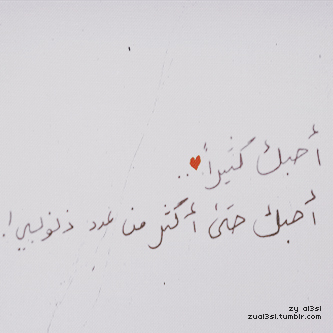 أحبك كثيراً ..
أحبك حتى أكثر من عدد ذنوبي !
zy al3si
zual3sl.tumblr.com